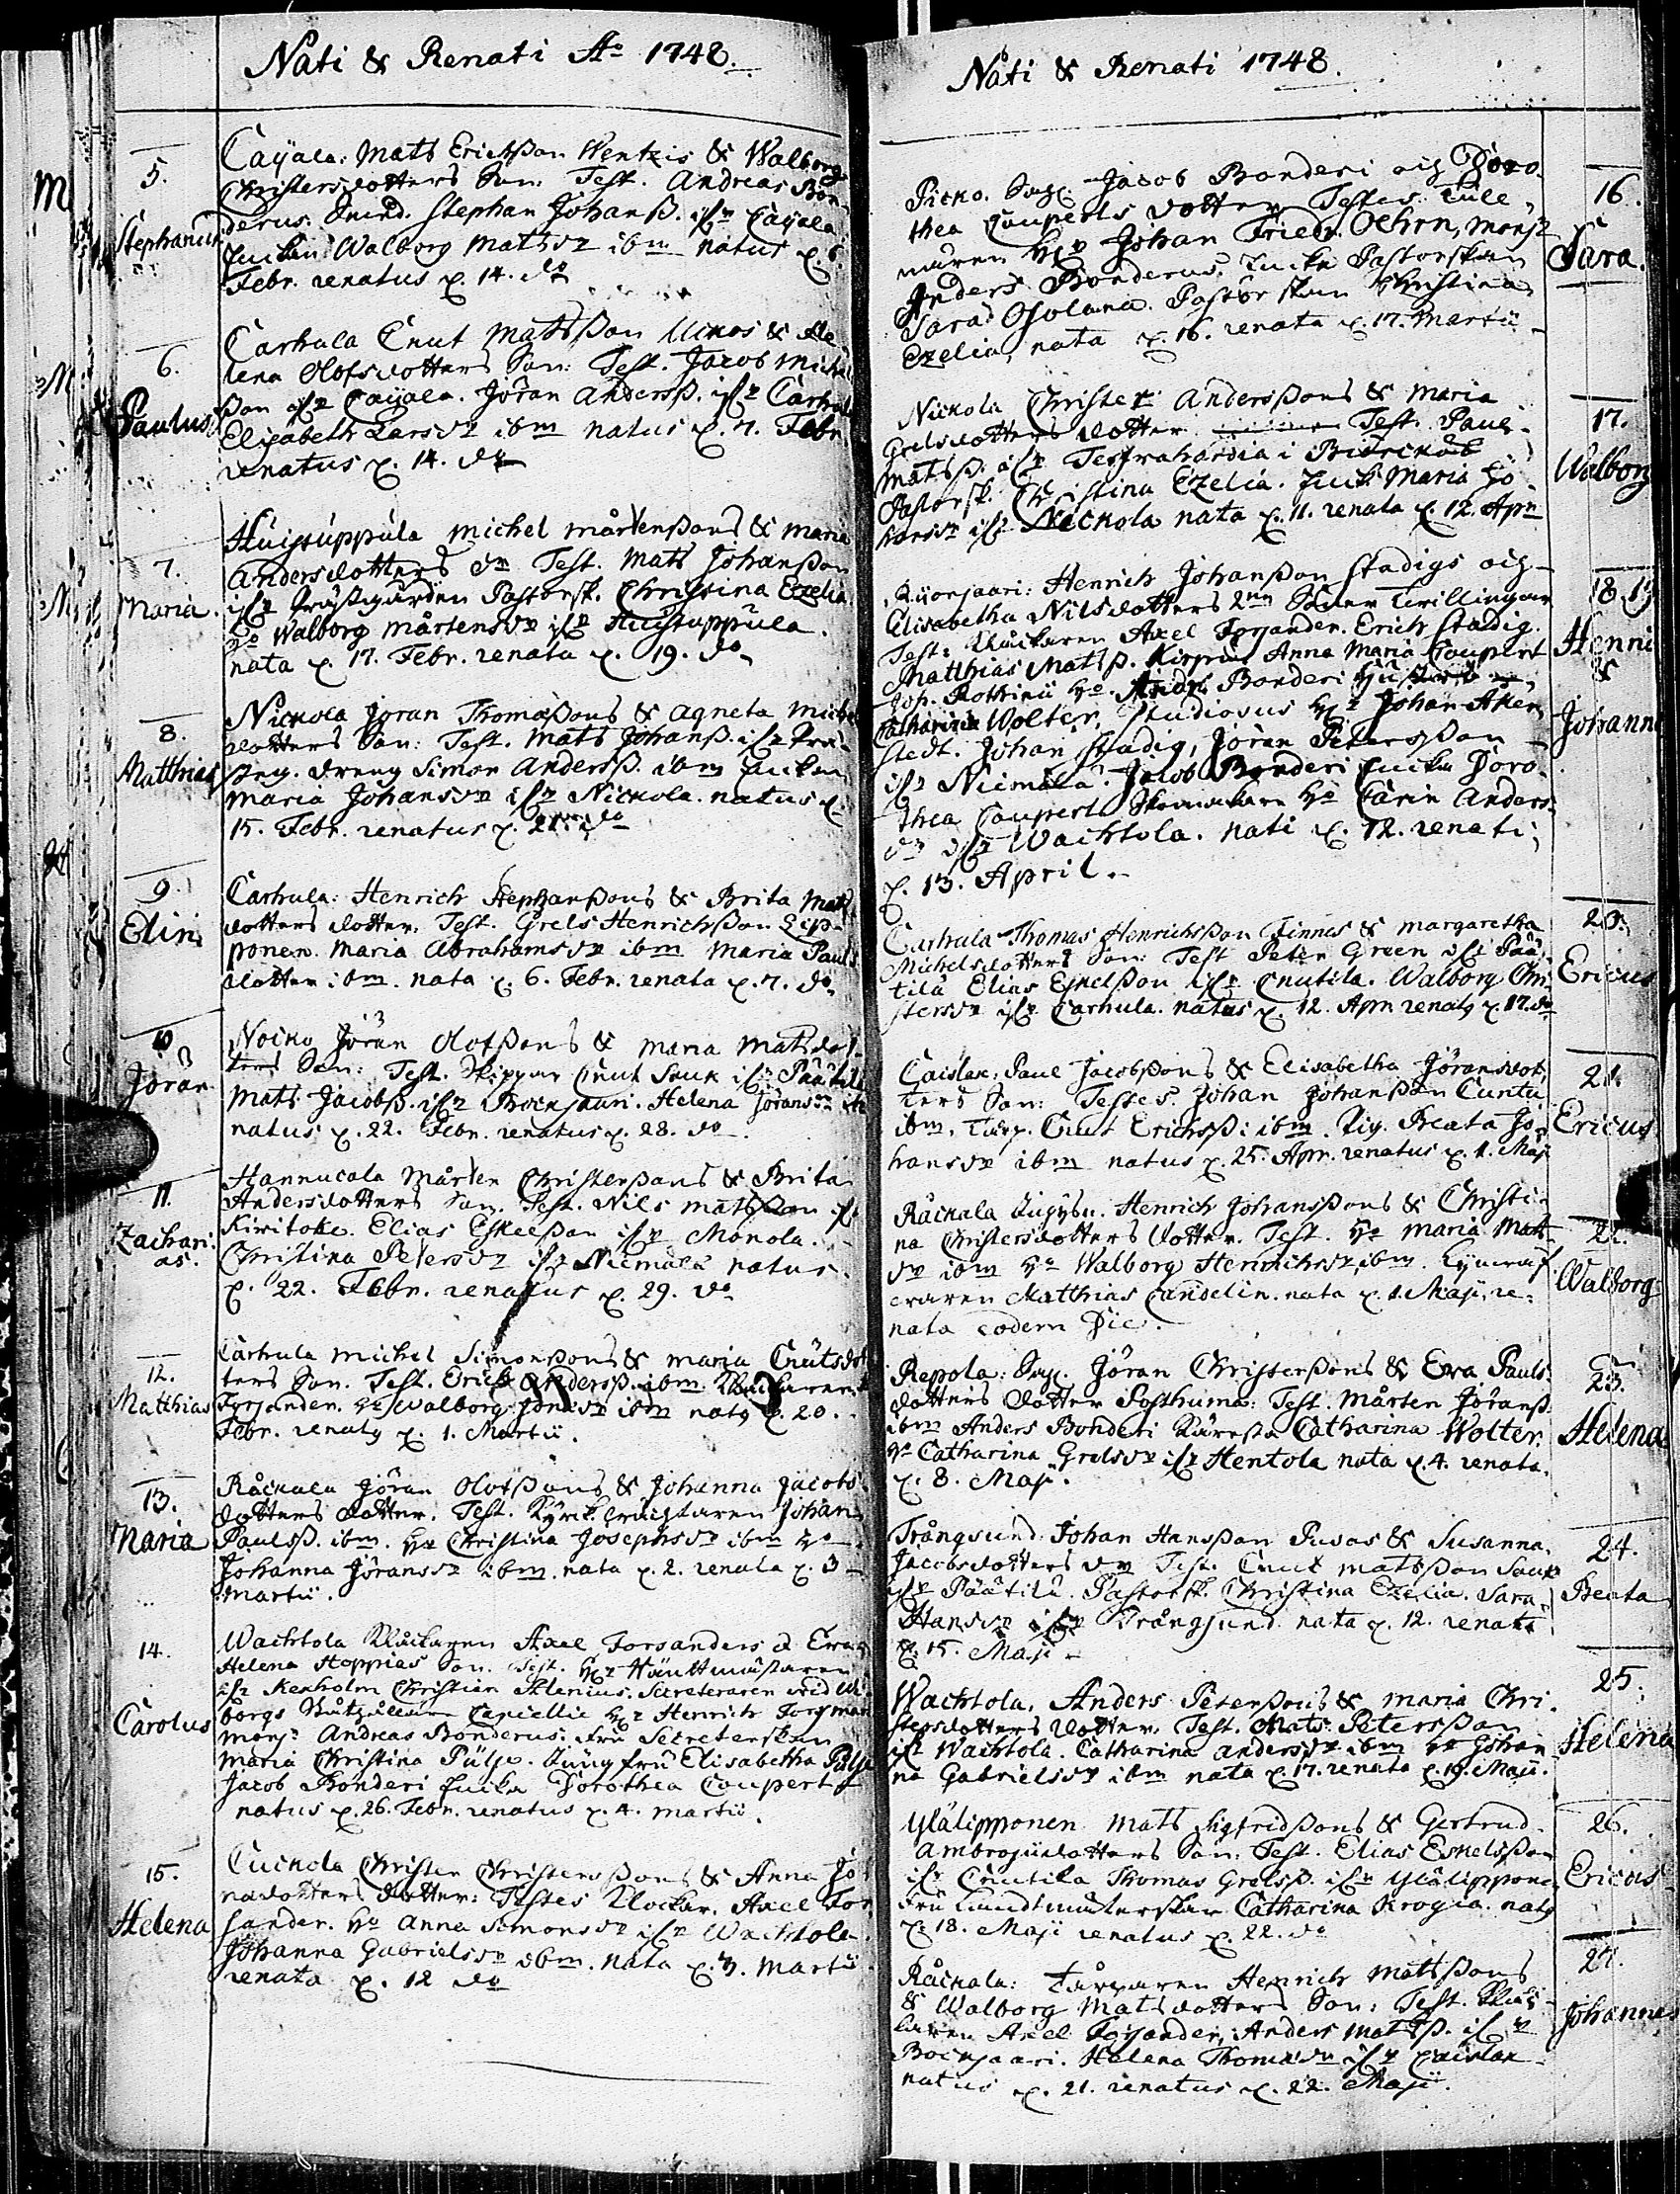 Nati & Renati Ao 1748.
5.
Stephanus
Cayala: Mats Erichsson Wentzis & Walborg
Christersdotters Son. Test. Andreas Bon-
derus. Stud. Stephan Johanss. ifr Cayala
Walborg Matsdr ibm natus d. 6.
Febr. renatus d. 14. do
6.
Paulus
Carhula Cnut Matsson Ukkos & He-
lena Olofsdotters Son: Test. Jacob Michel
sson ifr Cayala. Jöran Anderss. ifr Carhula
Elisabeth Larsdr ibm natus d. 7. Febr.
renatus d. 14. do
7.
Maria
Michel Mårtenssons & Maria
Andersdotters dr Test. Mats Johansson
ifr Prästgården Pastorsk. Christina Ezelia
Ho Walborg Mårtensdr ifr
nata d. 17. Febr. renata d. 19. do
8.
Matthias
Nickola Jöran Thomassons & Agneta Michels
dotters Son: Test. Mats Johanss. ifr Prä-
steg. dreng Simon Anderss. ibm
Maria Johansdr ifr Nickola. natus d.
15. Febr. renatus d. 21. do
9.
Elin
Carhula: Henrich Stephanssons & Brita Mats
dotters dotter. Test. Grels Henrichsson Lip-
ponen. Maria Abrahamsdr ibm Maria Pauls
dotter ibm. nata d. 6. Febr. renata d. 7. do
10
Jöran
Nocko Jöran Olofssons & Maria Matsdot-
ters Son: Test. Skippar Cnut Sauk ifr Päätilä
Mats Jacobss. ifr Boenjaari. Helena Jöransdr
natus d. 22. Febr. renatus d. 28. do
11.
Zachari-
as.
Hannucala Mårten Christerssons & Brita
Andersdotters Son. Test. Nils Matsson ifr
Kiwitoke. Elias Eskelsson ifr Monola.
Christina Petersdr ifr Niemälä natus
d. 22. Febr. renatus d. 29. do
12.
Matthias
Carhula Michel Simonssons & Maria Cnutsdot
ters Son. Test. Erich Anderss. ibm Klockaren
Forsander. Ho Walborg Jönsdr ibm nat9 d. 20.
Febr. renat9 d. 1. Martii.
13.
Maria
Råckala Jöran Olofssons & Johanna Jacobs
dotters dotter. Test. Johan
Paulss. ibm. Ho Christina Josephsdr ibm Ho
Johanna Jöransdr ibm. nata d. 2. renata d. 3
Martii.
14.
Carolus
Wachtola Klockaren Axel Forsanders & Eva
Helena Hoppias Son. Test. Hr
ifr Kexholm Christian Alenius. Secreteraren wid Wi-
borgs Cancellie Hr Henrich Forsman
Monsr Andreas Bonderus. Fru Secreterskan
Maria Christina Pülse. Jungfru Elisabetha Pülse
Jacob Bonderi Dorothea Coupert
natus d. 26. Febr. renatus d. 4. Martii.
15.
Helena
Cuckola Christer Christerssons & Anna Jö-
nsdotters dotter: Testes Klockar. Axel For-
sander. Ho Anna Simonsdr ifr Wachtola.
Johanna Gabrielsdr ibm. nata d. 7. Martii
renata d. 12 do
Nati & Renati 1748.
16.
Sara.
Picko. Jacob Bonderi och Doro-
thea Couperts dotter. Testes. Tulle-
Hr Johan Friedr. Oehrn, Monsr
Anders Bonderus. Pastorskan
Sara Osolana. Pastorskan Christina
Ezelia, nata d. 16. renata d. 17. Martii
17.
Walborg
Nickola Christer Anderssons & Maria
Grelsdotters dotter Test. Paul
Matss. ifr Tesfrahardia i Björckö
Pastorsk. Christina Ezelia. Maria Jo-
hansdr ifr Nickola nata d. 11. renata d. 12. Apr.
18 19
Henric
&
Johannes
Henrich Johansson Stadigs och
Elisabetha Nilsdotters 2ne Söner Twillingar
Test: Klockaren Axel Forsander. Erich Stadig.
Matthias Matss. Anna Maria Coupert
Jos. Rothovii Ho. Bonderi
Catharina Wolter. Studiosus Hr Johan Aker-
stedt. Johan Stadig, Jöran Petersson
ifr Niemälä. Jacob Bonderi Doro-
thea Coupert Ho Carin Anders-
dr ifr Wachtola. nati d. 12. renati
d. 13. April.
20.
Ericus
Carhula Thomas Henrichsson Finnes & Margaretha
Michelsdotters Son: Test Peter Green ifr Pää-
tilä Elias Eskelsson ifr Cnutila. Walborg Chri-
stersdr ifr Carhula. natus d. 12. Apr. renat9 d. 17. do
21.
Ericus
Caislax. Paul Jacobssons & Elisabetha Jöransdot-
ters Son: Testes. Johan Johansson Cuntu
ibm. Cnut Erichss. ibm. Pig. Beata Jo-
hansdr ibm natus d. 25. Apr. renatus d. 1. Maji
22.
Walborg
Råckala Henrich Johanssons & Christi-
na Christersdotters dotter. Test. Ho Maria Mats-
dr ibm Ho Walborg Henrichsdr ibm.
Matthias Candelin. nata d. 1. Maji, re-
nata eodem Die.
23.
Helena
Repola: Jöran Christerssons & Eva Pauls-
dotters dotter Posthuma: Test. Mårten Jöranss.
ibm Anders Bonderi Käresta Catharina Wolter.
Ho Catharina Grelsdr ifr Hentola nata d. 4. renata
d. 8. Maji.
24.
Beata
Trångsund Johan Hansson Pusas & Susanna
Jacobsdotters dr Test. Cnut Matsson Sauk
ifr Päätilä. Pastorsk. Christina Ezelia. Sara
Hansdr ifr Trångsund nata d. 12. renata
d. 15. Maji
25.
Helena
Wachtola, Anders Peterssons & Maria Chri-
stersdotters dotter. Test. Mats Petersson
ifr Wachtola. Catharina Andersdr ibm Ho Johan-
na Gabrielsdr ibm nata d. 17. renata d. 19. Maji.
26.
Ericus
Yläliponen Mats Sigfridssons & Gertrud
Ambrosiidotters Son: Test. Elias Eskelsson
ifr Cnutila Thomas Grelss. ifr Yläliponen
Fru Landtmäterskan Catharina Krogia. nat9
d. 18. Maji renatus d. 22. do
27.
Johannes
Råckala: Henrich Matssons
& Walborg Matsdotters Son: Test. Kloc-
karen Axel Forsander, Anders Matss. ifr
Boenjaari. Helena Thomasdr ifr Caislax
natus d. 21. renatus d. 22. Maji.